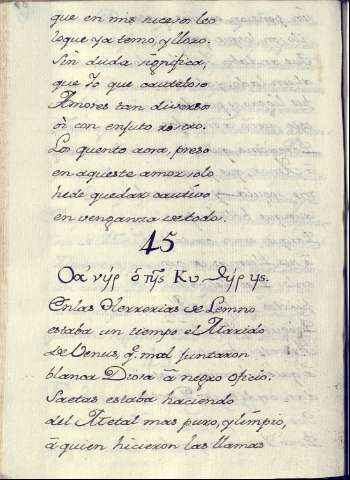 que en mis sucesos leo
loque ya temo, y lloro.
Sin duda significa,
que Yo que cauteloso
Amores tan diversos
oì con enjuto rostro.
Los quento aora, preso
en aqueste amor solo
hede quedar cautivo
en venganza de todo.
45
Οἁ νὴρ ὁ τῆς Κυ θήρης.
Enlas Herrerias de Lemno
estaba un tiempo el Marido
de Venus, q̃. mal juntaron
blanca Diosa â negro oficio.
Saetas estaba haciendo
del Metal mas puro, y limpio,
â quien hicieron las llamas